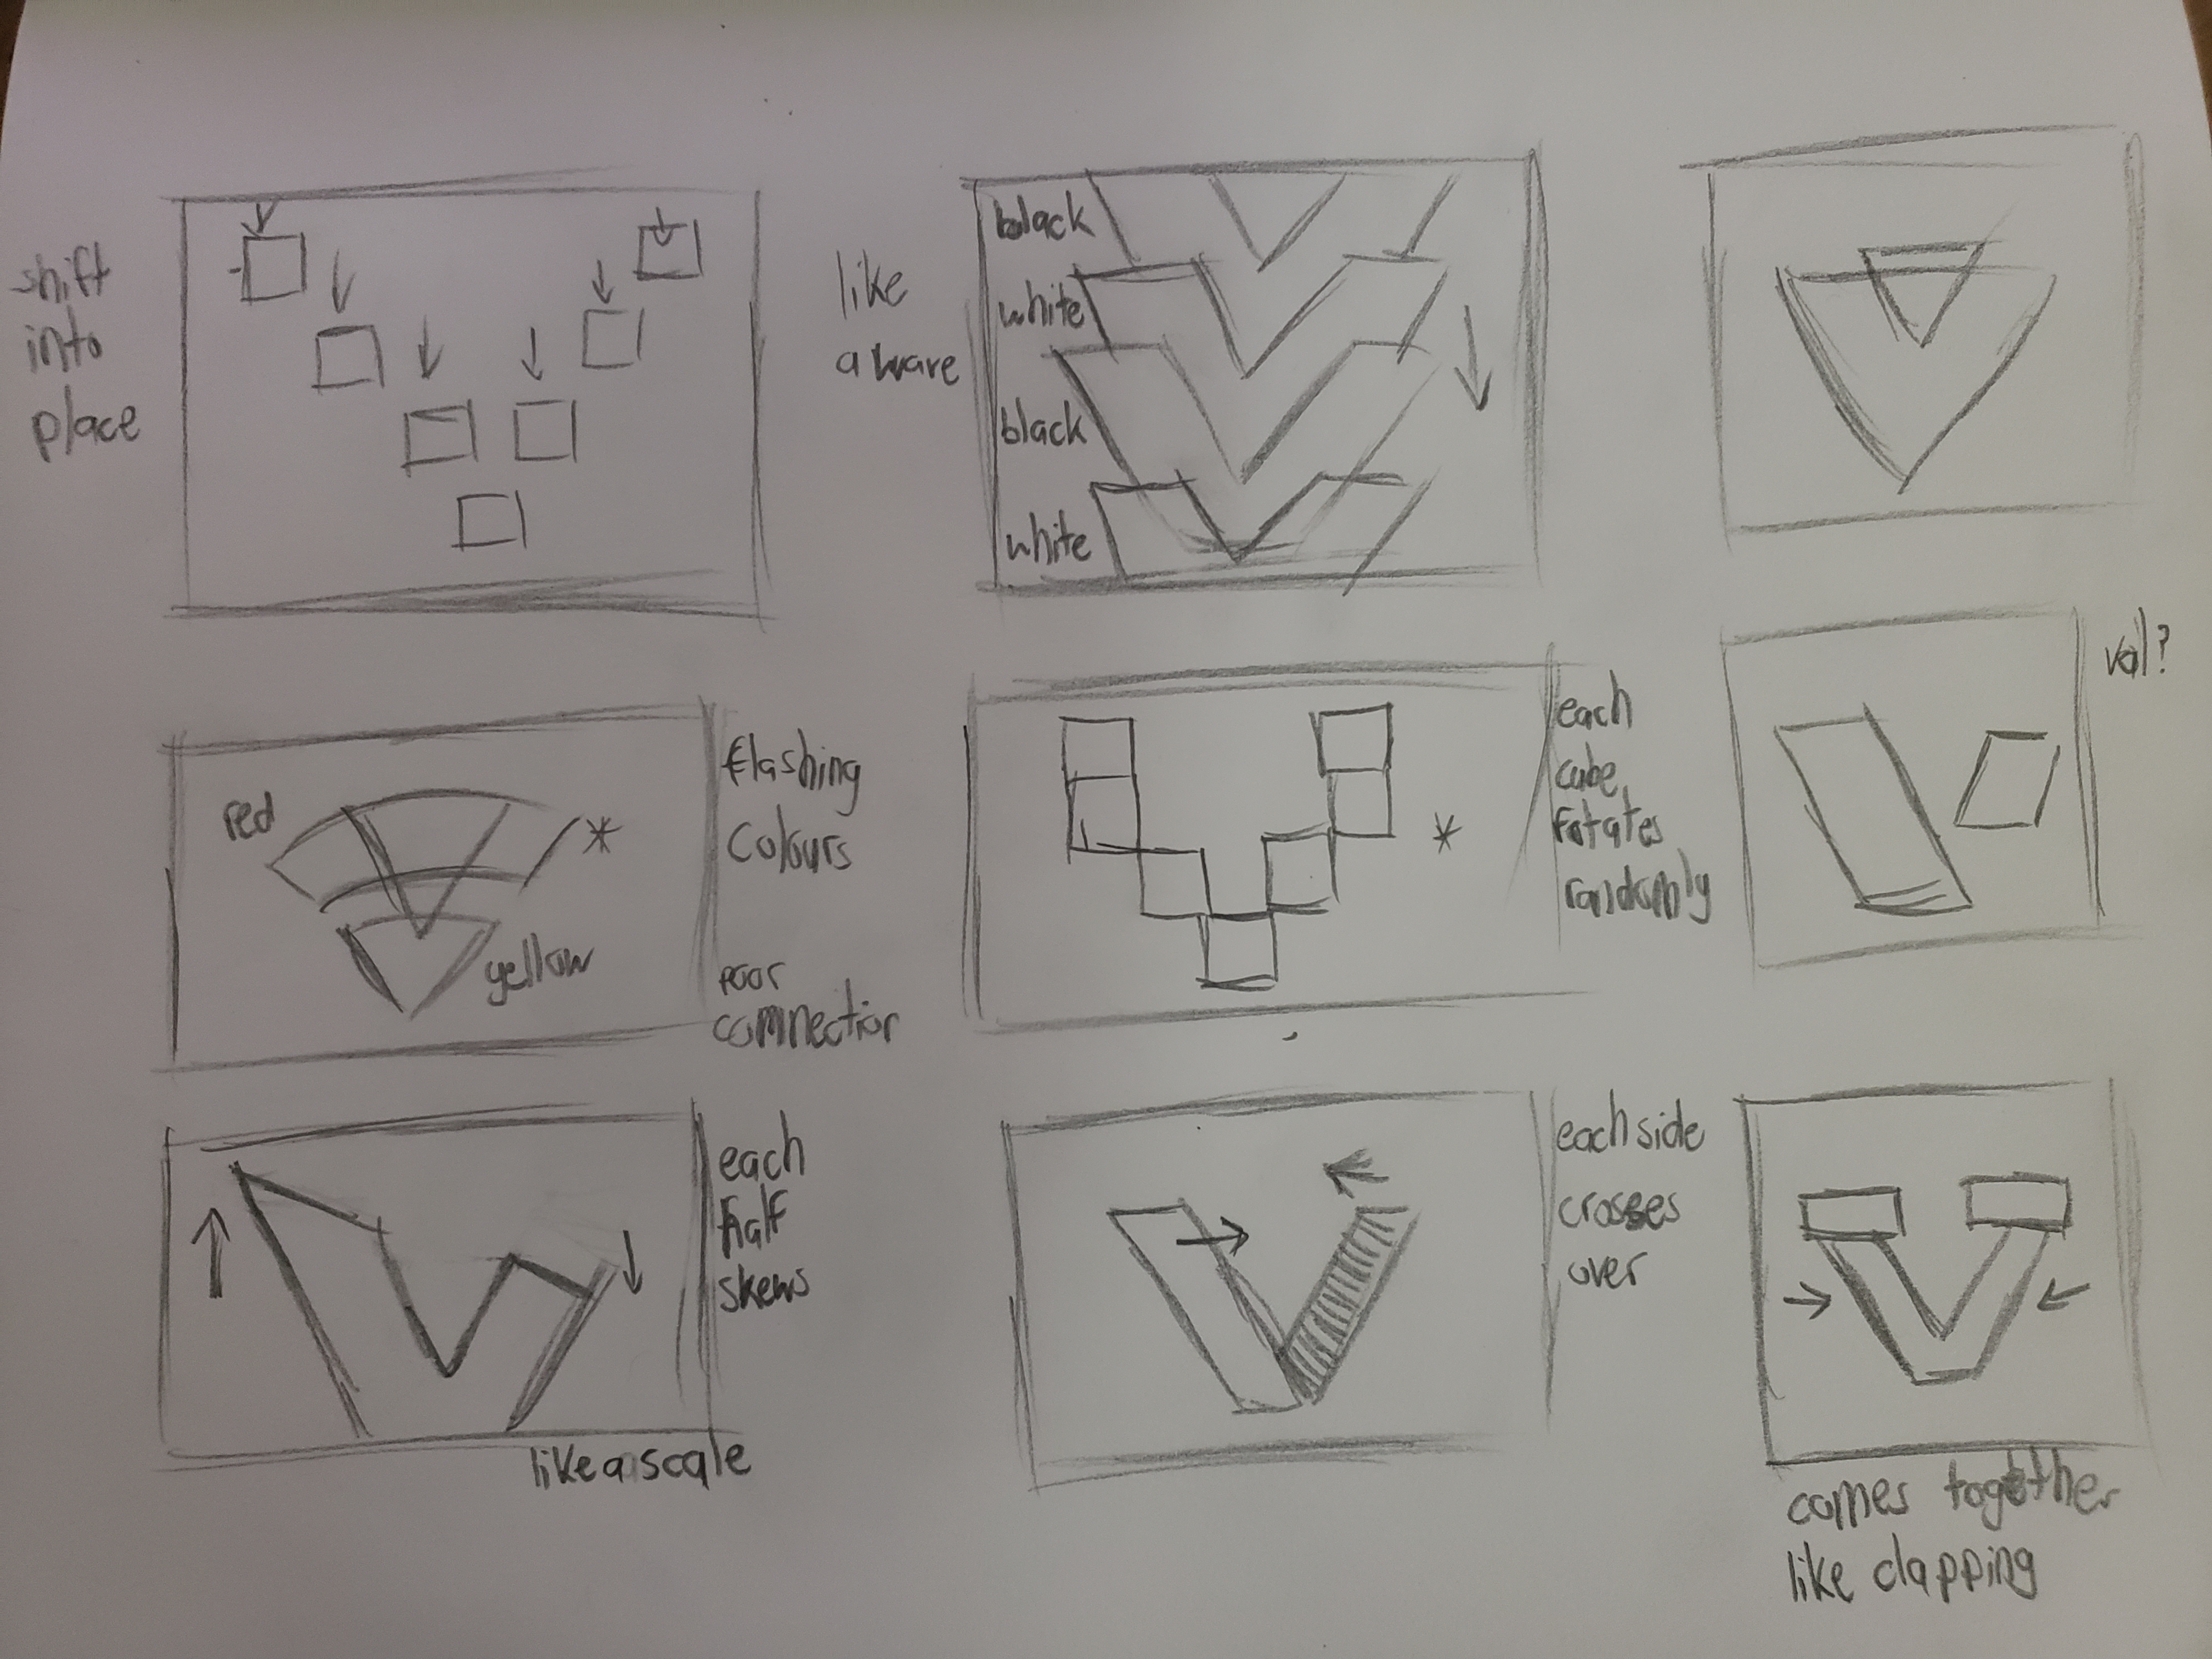 shift
into
place
like
a wave
black
white
black
white
red
yellow
flashing
colours
poor
comnection
each
cube
rotates
randomly
val?
each
half
skews
like a scale
each side
crosses
over
comes together
like clapping